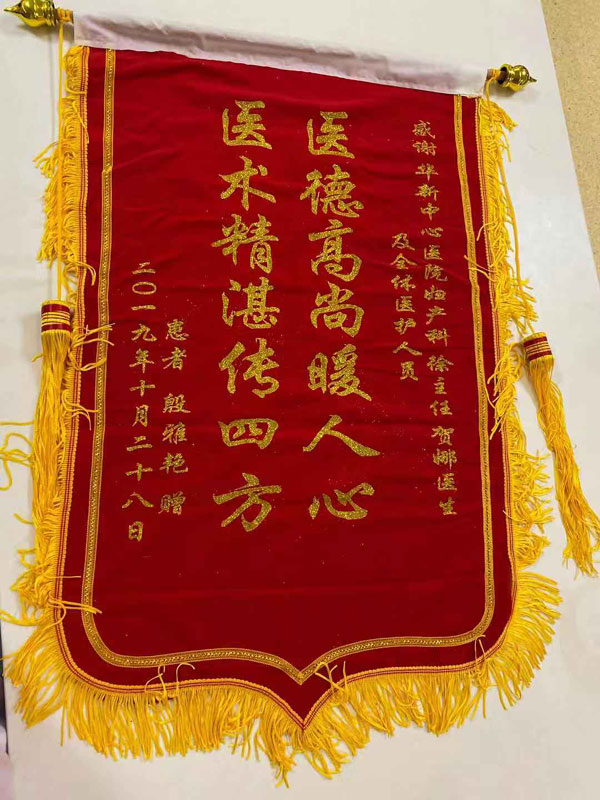 感谢阜新中心医院妇产科徐主任贺娜医生
及全体医护人员
医德高尚暖人心
医术精湛传四方
患者 殷雅艳 赠
二〇一九年十月二十八日